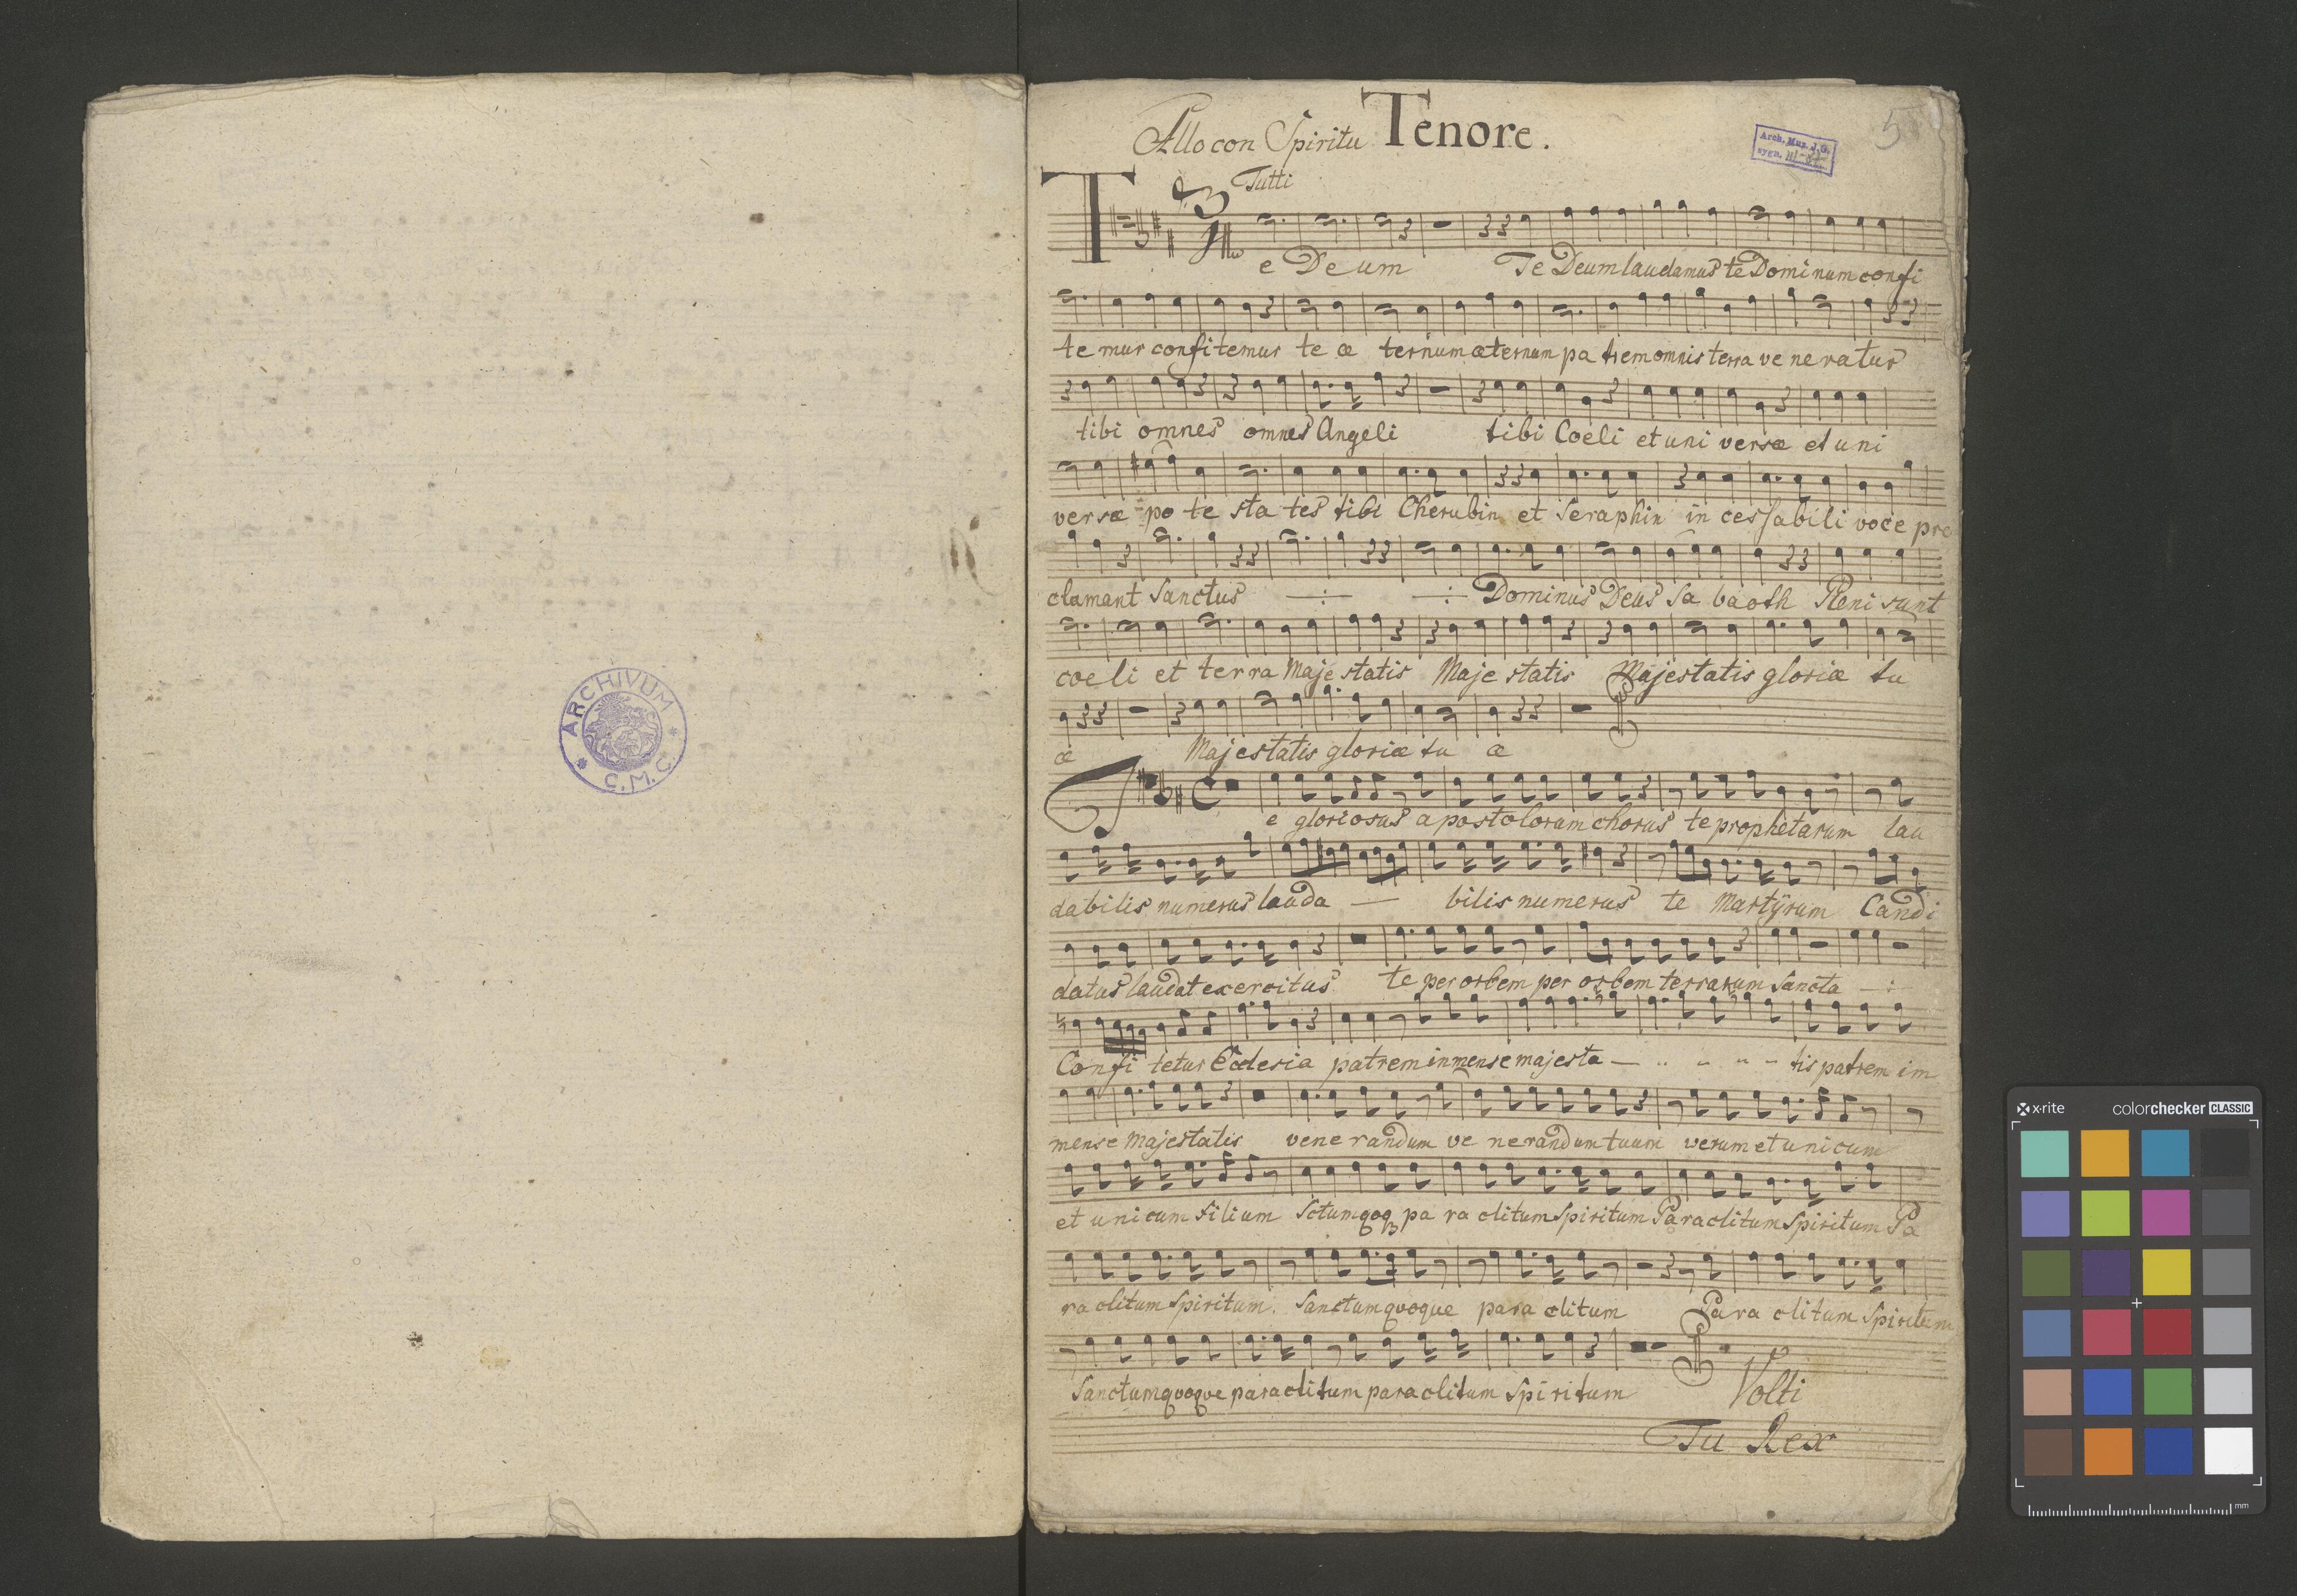 ARCHIVUM
* C.M.C. *
Allo con Spiritu Tenore.
Arch. Mus. J.G.
sygn.
5
Tutti
Te Deum Te Deum laudamus te Dominum confi
temur confitemur te æ ternum æternum pa trem omnis terra ve ne ratur
tibi omnes omnes Angeli tibi Coeli et uni versæ et uni
versæ po te sta tes tibi Cherubin et Seraphin in cessabili voce pro
clamant Sanctus —:— —:— Dominus Deus Sa baoth Pleni sunt
coeli et terra Maje statis Maje statis Majestatis gloriæ tu
æ Majestatis gloriæ tu æ
Te gloriosus apostolorum chorus te prophetarum lau
dabilis numerus lauda — bilis numerus te Martÿrum Candi
datus laudat exercitus te per orbem per orbem terrarum Sancta —:
Confi tetur Ecclesia patrem inmense majesta — tis patrem im
mense Majestatis vene randum ve nerandum tuum verum et unicum
et unicum filium Sctum qoq pa ra clitum Spiritum Paraclitum Spiritum Pa
ra clitum Spiritum. Sanctum quoque para clitum Para clitum Spiritum
Sanctum quoque paraclitum paraclitum Spiritum Volti
Tu Rex
x-rite colorchecker CLASSIC
mm